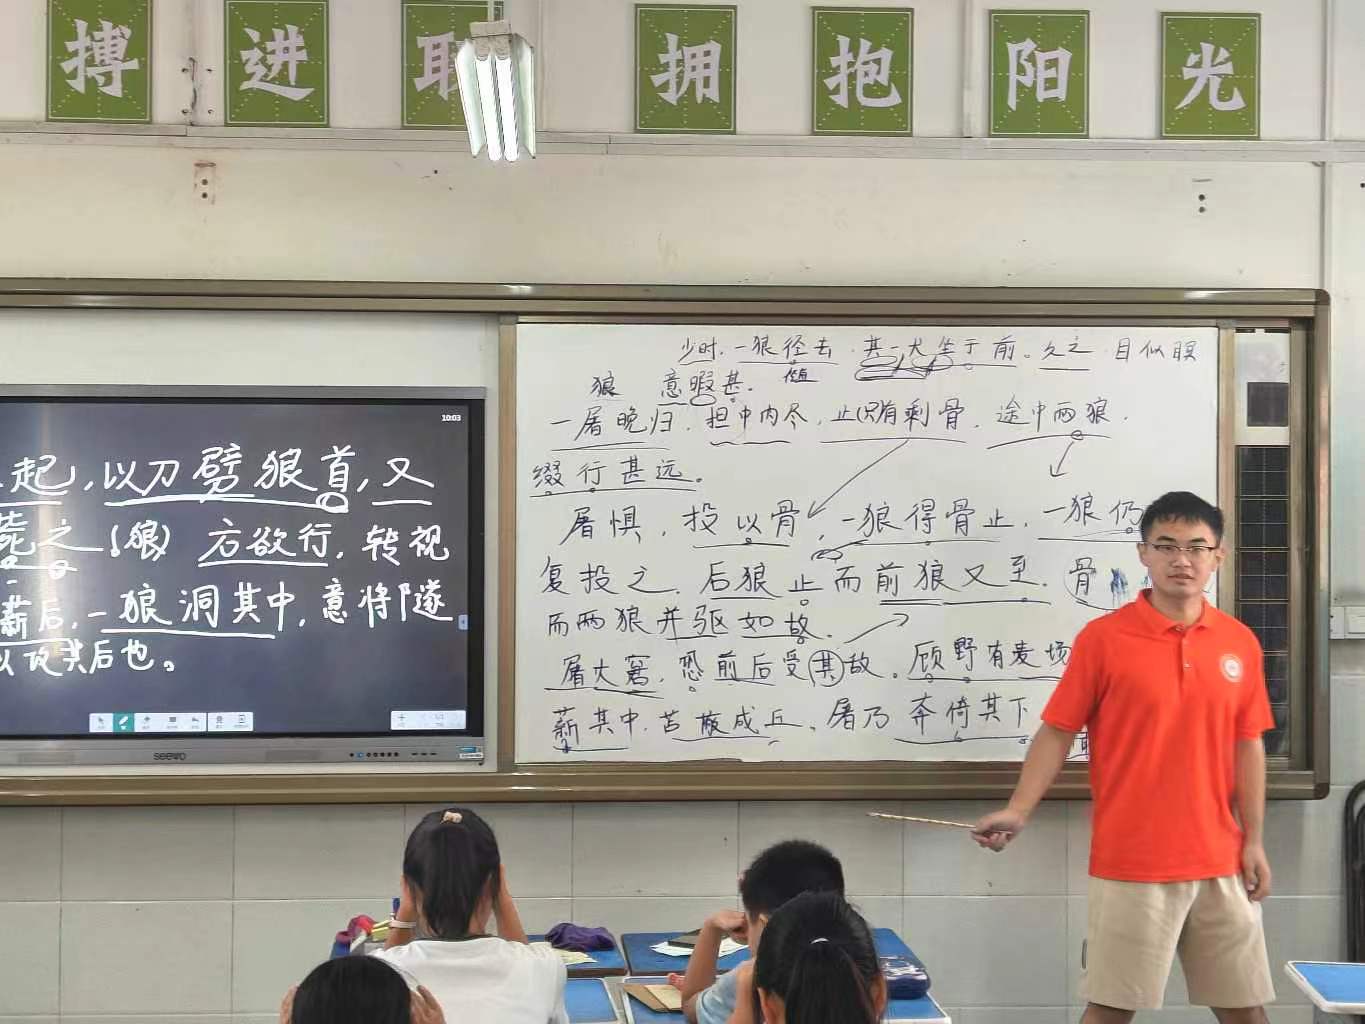 搏 进 拥 抱 阳 光
少时.一狼径去.其一犬坐于前。久之.目似瞑
狼 意暇甚.
一屠晚归.担中肉尽,止 剩骨.途中两狼.
缀行甚远。
屠惧,投以骨,一狼得骨止.一狼仍
复投之.后狼止而前狼又至.骨
而两狼并驱如故.
屠大窘.恐前后受其敌.顾野有麦场
薪其中.苫蔽成丘.屠乃奔倚其下
10:03
起,以刀劈狼首,又
毙之(狼)方欲行,转视
薪后,一狼洞其中,意将隧
以攻其后也。
seewo